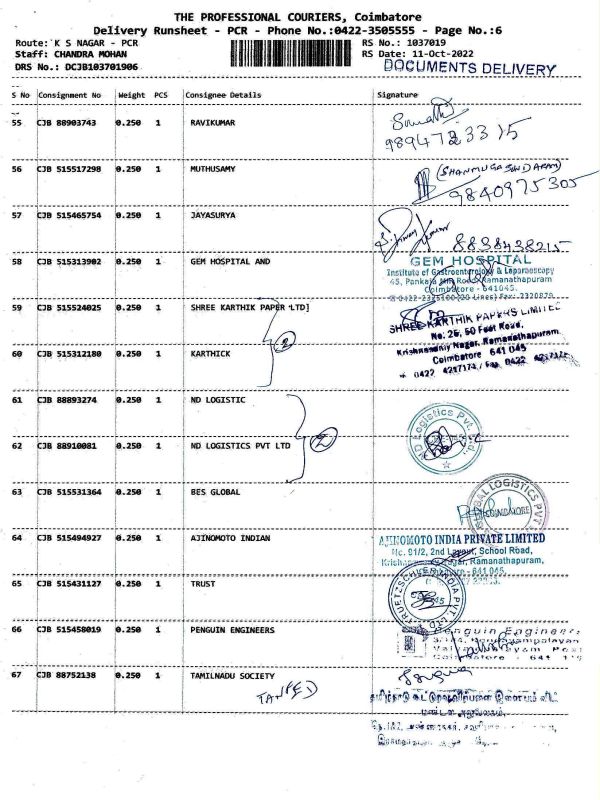 THE PROFESSIONAL COURIERS, Coimbatore
Delivery Runsheet - PCR - Phone No.:0422-3505555 - Page No.:6
Route: K S NAGAR - PCR
RS No.: 1037019
Staff: CHANDRA MOHAN
RS Date: 11-Oct-2022
DRS No.: DCJB103701906
DOCUMENTS DELIVERY
S No Consignment No Weight PCS Consignee Details Signature
55 CJB 88903743 0.250 1 RAVIKUMAR
56 CJB 515517298 0.250 1 MUTHUSAMY
(SHANMUGA SUNDARAM)
9840975305
57 CJB 515465754 0.250 1 JAYASURYA
8838438215
58 CJB 515313902 0.250 1 GEM HOSPITAL AND
GEM HOSPITAL
Institute of Gastroenterology & Laparoscopy
45, Pankaja Mill Road, Ramanathapuram
Coimbatore - 641045.
0422-2325100 (20 Lines) Fax: 2320879
59 CJB 515524025 0.250 1 SHREE KARTHIK PAPER LTD]
SHREE KARTHIK PAPERS LIMITED
No. 25, 50 Feet Road,
Krishnaswamy Nagar, Ramanathapuram,
Coimbatore 641 045
0422 4217174 / Fax 0422
60 CJB 515312180 0.250 1 KARTHICK
2
61 CJB 88893274 0.250 1 ND LOGISTIC
ND Logistics Pvt. Ltd.,
62 CJB 88910081 0.250 1 ND LOGISTICS PVT LTD
2
63 CJB 515531364 0.250 1 BES GLOBAL
GLOBAL LOGISTICS PVT
COIMBATORE
64 CJB 515494927 0.250 1 AJINOMOTO INDIAN
AJINOMOTO INDIA PRIVATE LIMITED
No. 91/2, 2nd Layout, School Road,
Nagar, Ramanathapuram,
- 641 045.
65 CJB 515431127 0.250 1 TRUST
TRUETZSCHLER INDIA PVT LTD
66 CJB 515458019 0.250 1 PENGUIN ENGINEERS
Penguin Engineers
Coimbatore - 641
67 CJB 88752138 0.250 1 TAMILNADU SOCIETY